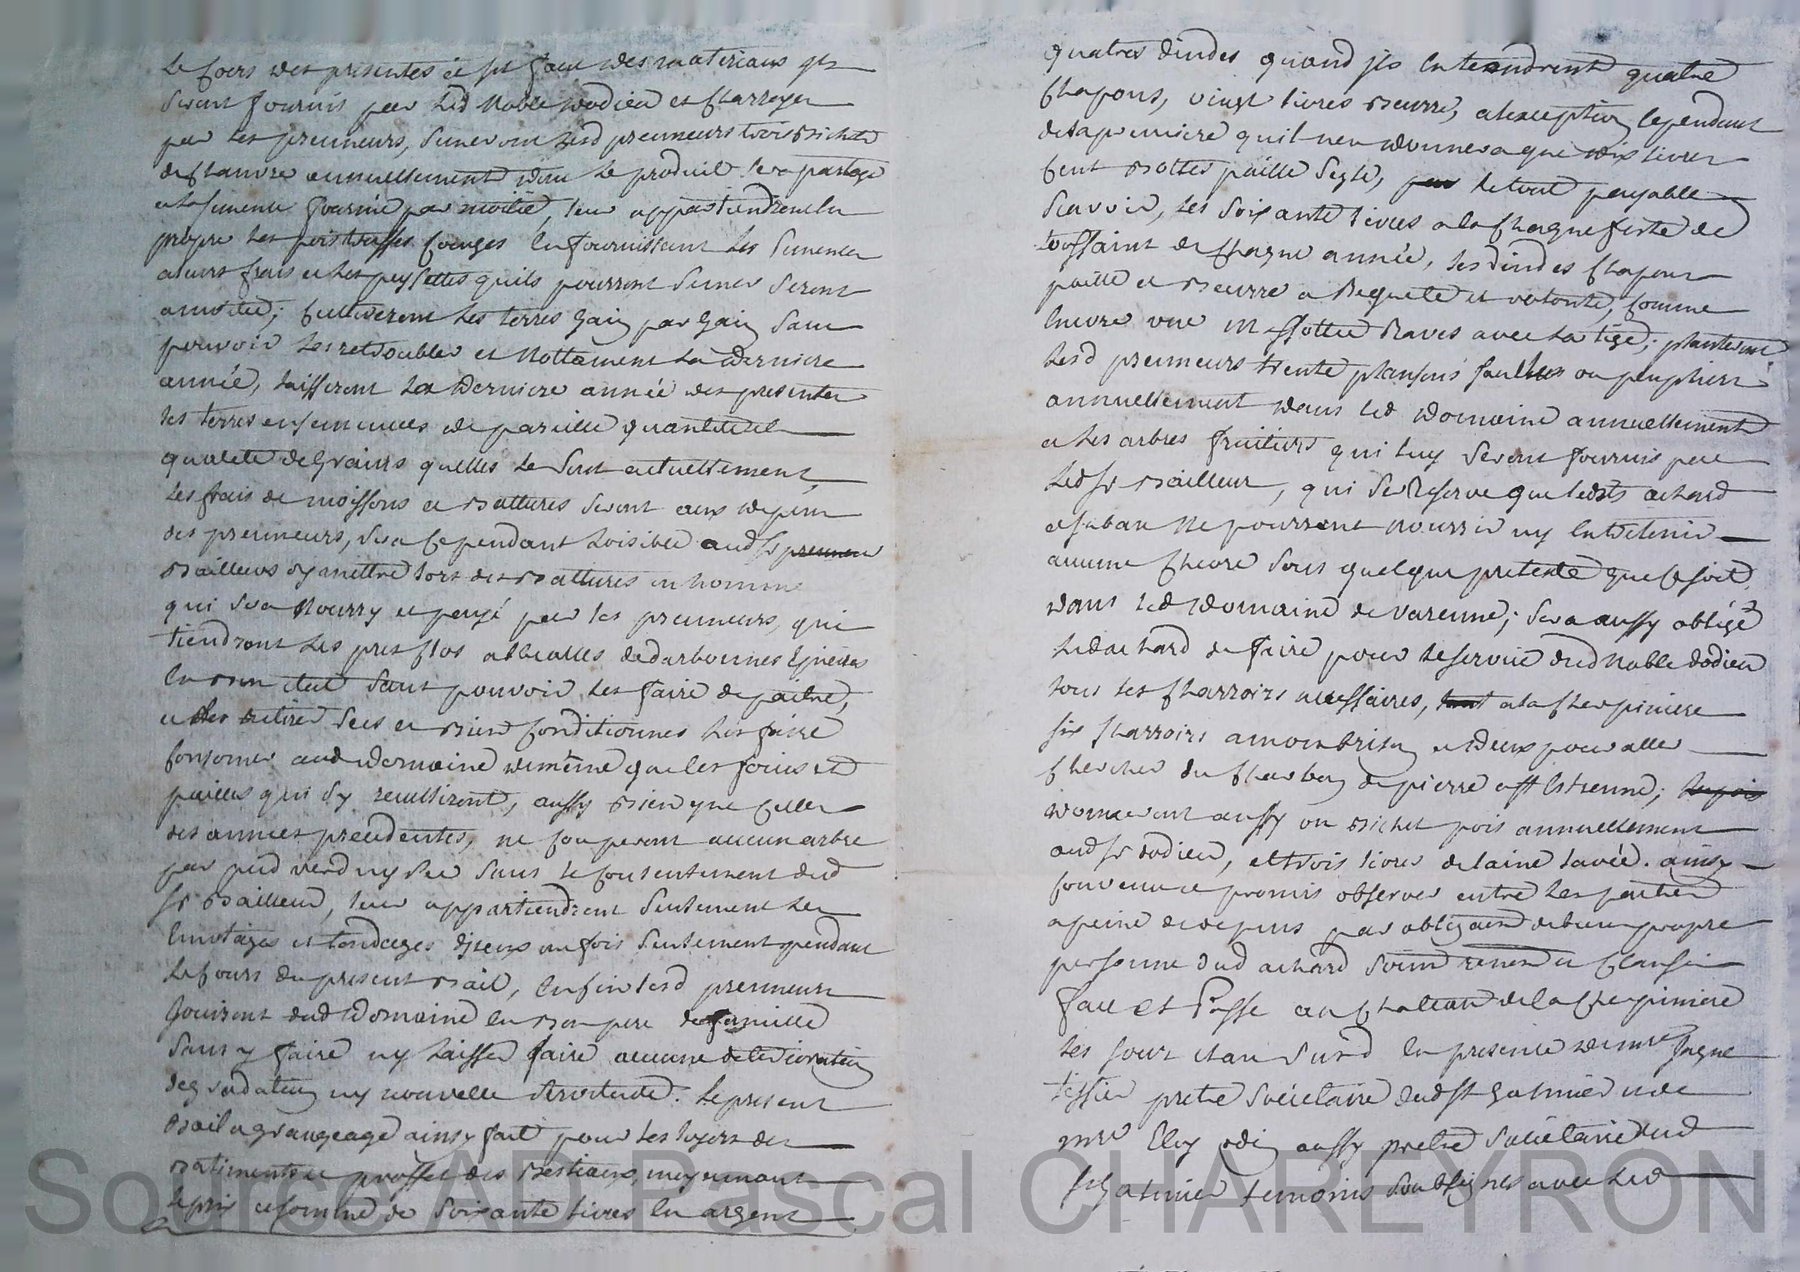 le cours des presentes et fet faire des materiaux qls
seront fournis par led Noble dodieu et charroyer
par les preneurs, semeront lesd preneurs trois bichets
de chanvre annuellement dont le produit sera partage
et la semence fournie par moitié, leur appartiendront en
propre les pois truffes courges en fournissant les semences
a leurs frais et les peysettes quils pourront semer seront
a moitié; cultiveront les terres Gain par Gain sans
pouvoir les redoubler et Nottament la derniere
année, laisseront la derniere année des presentes
les terres ensemencées de pareille quantité et
qualité de Grains quelles le sont actuellement,
les frais de moissons et battures seront aux depens
des preneurs, sera cependant loisible aud sr preneur
bailleur dy mettre lors des battures un homme
qui sera Nourry et payé par les preneurs, qui
tiendront les pres clos abealles dedarbonnes Epierres
en bon etat sans pouvoir les faire depaitre,
et les retirer secs et bien conditionnes les faire
consomer aud domaine de même que les foins et
pailles qui sy recuilliront, aussy bien que celles
des années precedentes, ne couperont aucun arbre
par pied verd ny sec sans le consentement dud
sr bailleur, leur appartiendront seulement les
Emotages et tondages diceux une fois seulement pendant
le cours du present bail, enfin lesd preneurs
Jouiront dud domaine en bon pere de famille
sans y faire ny laisser faire aucune deterioration
degradation ny nouvelle servitude. Le present
bail a grangeage ainsy fait pour les loyers des
batiments et proffet des bestiaux, moyennant
le prix et somme de soixante livres en argent
quatres dindes quand jls en tiendront quatre
chapons, vingt livres beurre, a lexception cependant
de la premiere quil nen donnera que dix livres
cent bottes paille segle, par le tout payable
scavoir, les soixante livres a la chaque feste de
toussaint de chaque année, les dindes chapons
paille et beurre a Requete et volonté, comme
encore une Raves avec la tige; planteront
lesd preneurs trente plansons saulles ou peupliers
annuellement dans led domaine annuellement
et les arbres fruitiers qui luy seront fournis par
led sr bailleur, qui se Reserve que lesdts achard
et ne pourront nourrir ny Entretenir
aucune chevre sous quelque pretexte que ce soit,
dans led domaine de varenne; sera aussy obligé
led achard de faire pour le service dud Noble dodieu
tous les charroirs necessaires, tant a la cherpiniere
six charroirs a montbrison et deux pour aller
chercher du charbon de pierre a st Estienne; le pois
donneront aussy un bichet pois annuellement
aud sr dodieu, et trois livres de laine lavée. ainsy
convenu et promis observer entre les parties
a peine de depens par obligaon de biens propre
personne dud achard soum renon et clauses
fait et Passé au chateau de la cherpiniere
les jour et an susd en presence de mre Jaque
tissier pretre societaire dud st Galmier et de
mre Eloy odin aussy pretre societaire dud
st Galmier temoins soussignes avec led
Source AD Pascal CHAREYRON